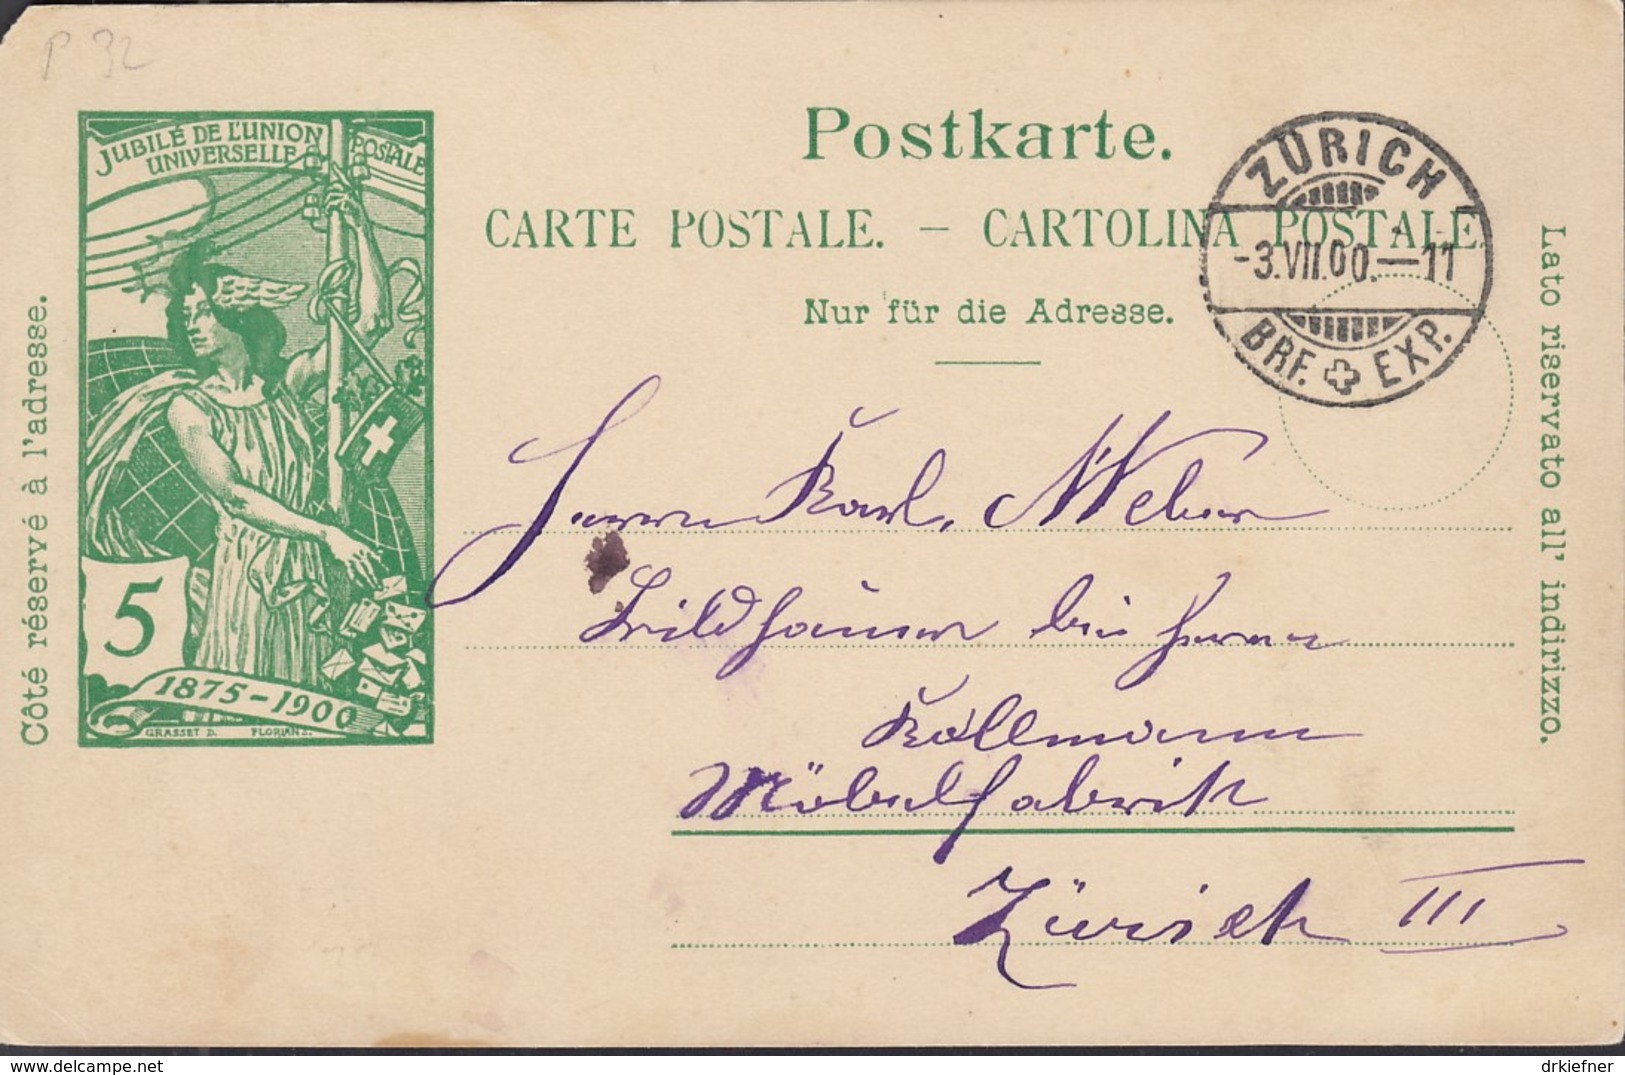 P 32
JUBILÉ DE L'UNION
UNIVERSELLE POSTALE
5
1875-1900
GRASSET D. FLORIAN S.
Côté réservé à l'adresse.
Postkarte.
CARTE POSTALE. — CARTOLINA POSTALE.
Nur für die Adresse.
ZÜRICH
-3.VII.00.—11
BRF. EXP.
Lato riservato all' indirizzo.
Herrn Karl Weber
Bildhauer bei Herrn
Möbelfabrik
Zürich III
drkiefner